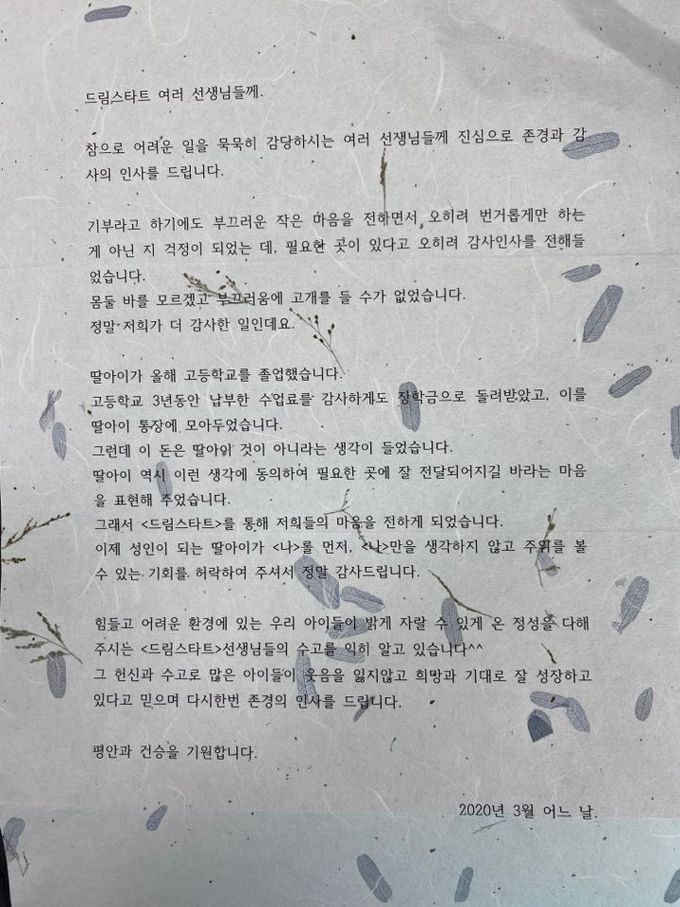 드림스타트 여러 선생님들께.
참으로 어려운 일을 묵묵히 감당하시는 여러 선생님들께 진심으로 존경과 감
사의 인사를 드립니다.
기부라고 하기에도 부끄러운 작은 마음을 전하면서, 오히려 번거롭게만 하는
게 아닌 지 걱정이 되었는 데, 필요한 곳이 있다고 오히려 감사인사를 전해들
었습니다.
몸둘 바를 모르겠고 부끄러움에 고개를 들 수가 없었습니다.
정말 저희가 더 감사한 일인데요.
딸아이가 올해 고등학교를 졸업했습니다.
고등학교 3년동안 납부한 수업료를 감사하게도 장학금으로 돌려받았고, 이를
딸아이 통장에 모아두었습니다.
그런데 이 돈은 딸아이 것이 아니라는 생각이 들었습니다.
딸아이 역시 이런 생각에 동의하여 필요한 곳에 잘 전달되어지길 바라는 마음
을 표현해 주었습니다.
그래서 <드림스타트>를 통해 저희들의 마음을 전하게 되었습니다.
이제 성인이 되는 딸아이가 <나>를 먼저, <나>만을 생각하지 않고 주위를 볼
수 있는 기회를 허락하여 주셔서 정말 감사드립니다.
힘들고 어려운 환경에 있는 우리 아이들이 밝게 자랄 수 있게 온 정성을 다해
주시는 <드림스타트>선생님들의 수고를 익히 알고 있습니다^^
그 헌신과 수고로 많은 아이들이 웃음을 잃지않고 희망과 기대로 잘 성장하고
있다고 믿으며 다시한번 존경의 인사를 드립니다.
평안과 건승을 기원합니다.
2020년 3월 어느 날.